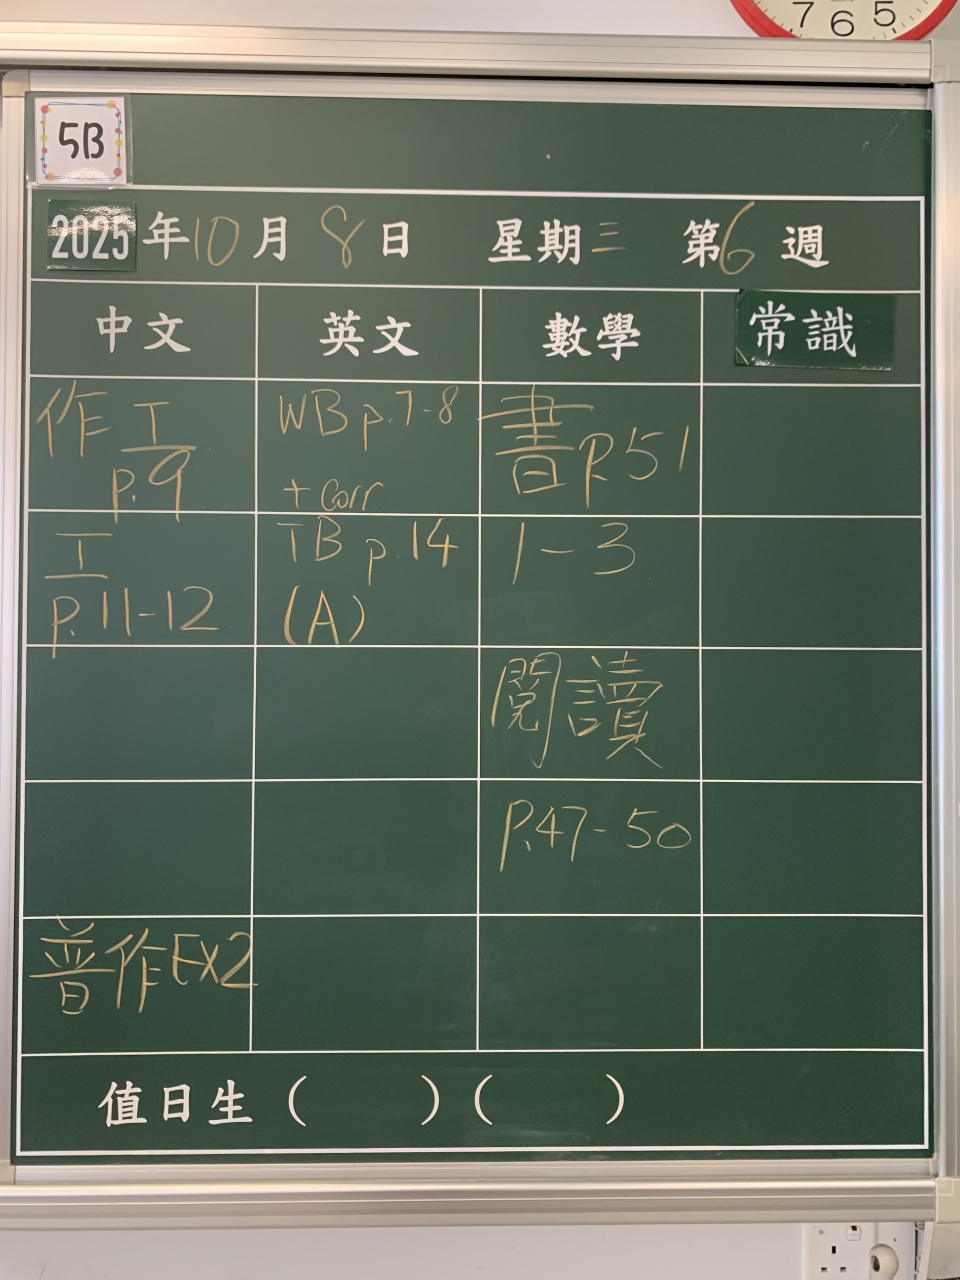 7 6 5
5B
2025年10月8日 星期三 第6週
中文 英文 數學 常識
作工
p.9
WB p.7-8
+ Corr
書P.51
工
p.11-12
TB p.14
(A)
1-3
閱讀
P.47-50
普作Ex2
值日生 ( ) ( )